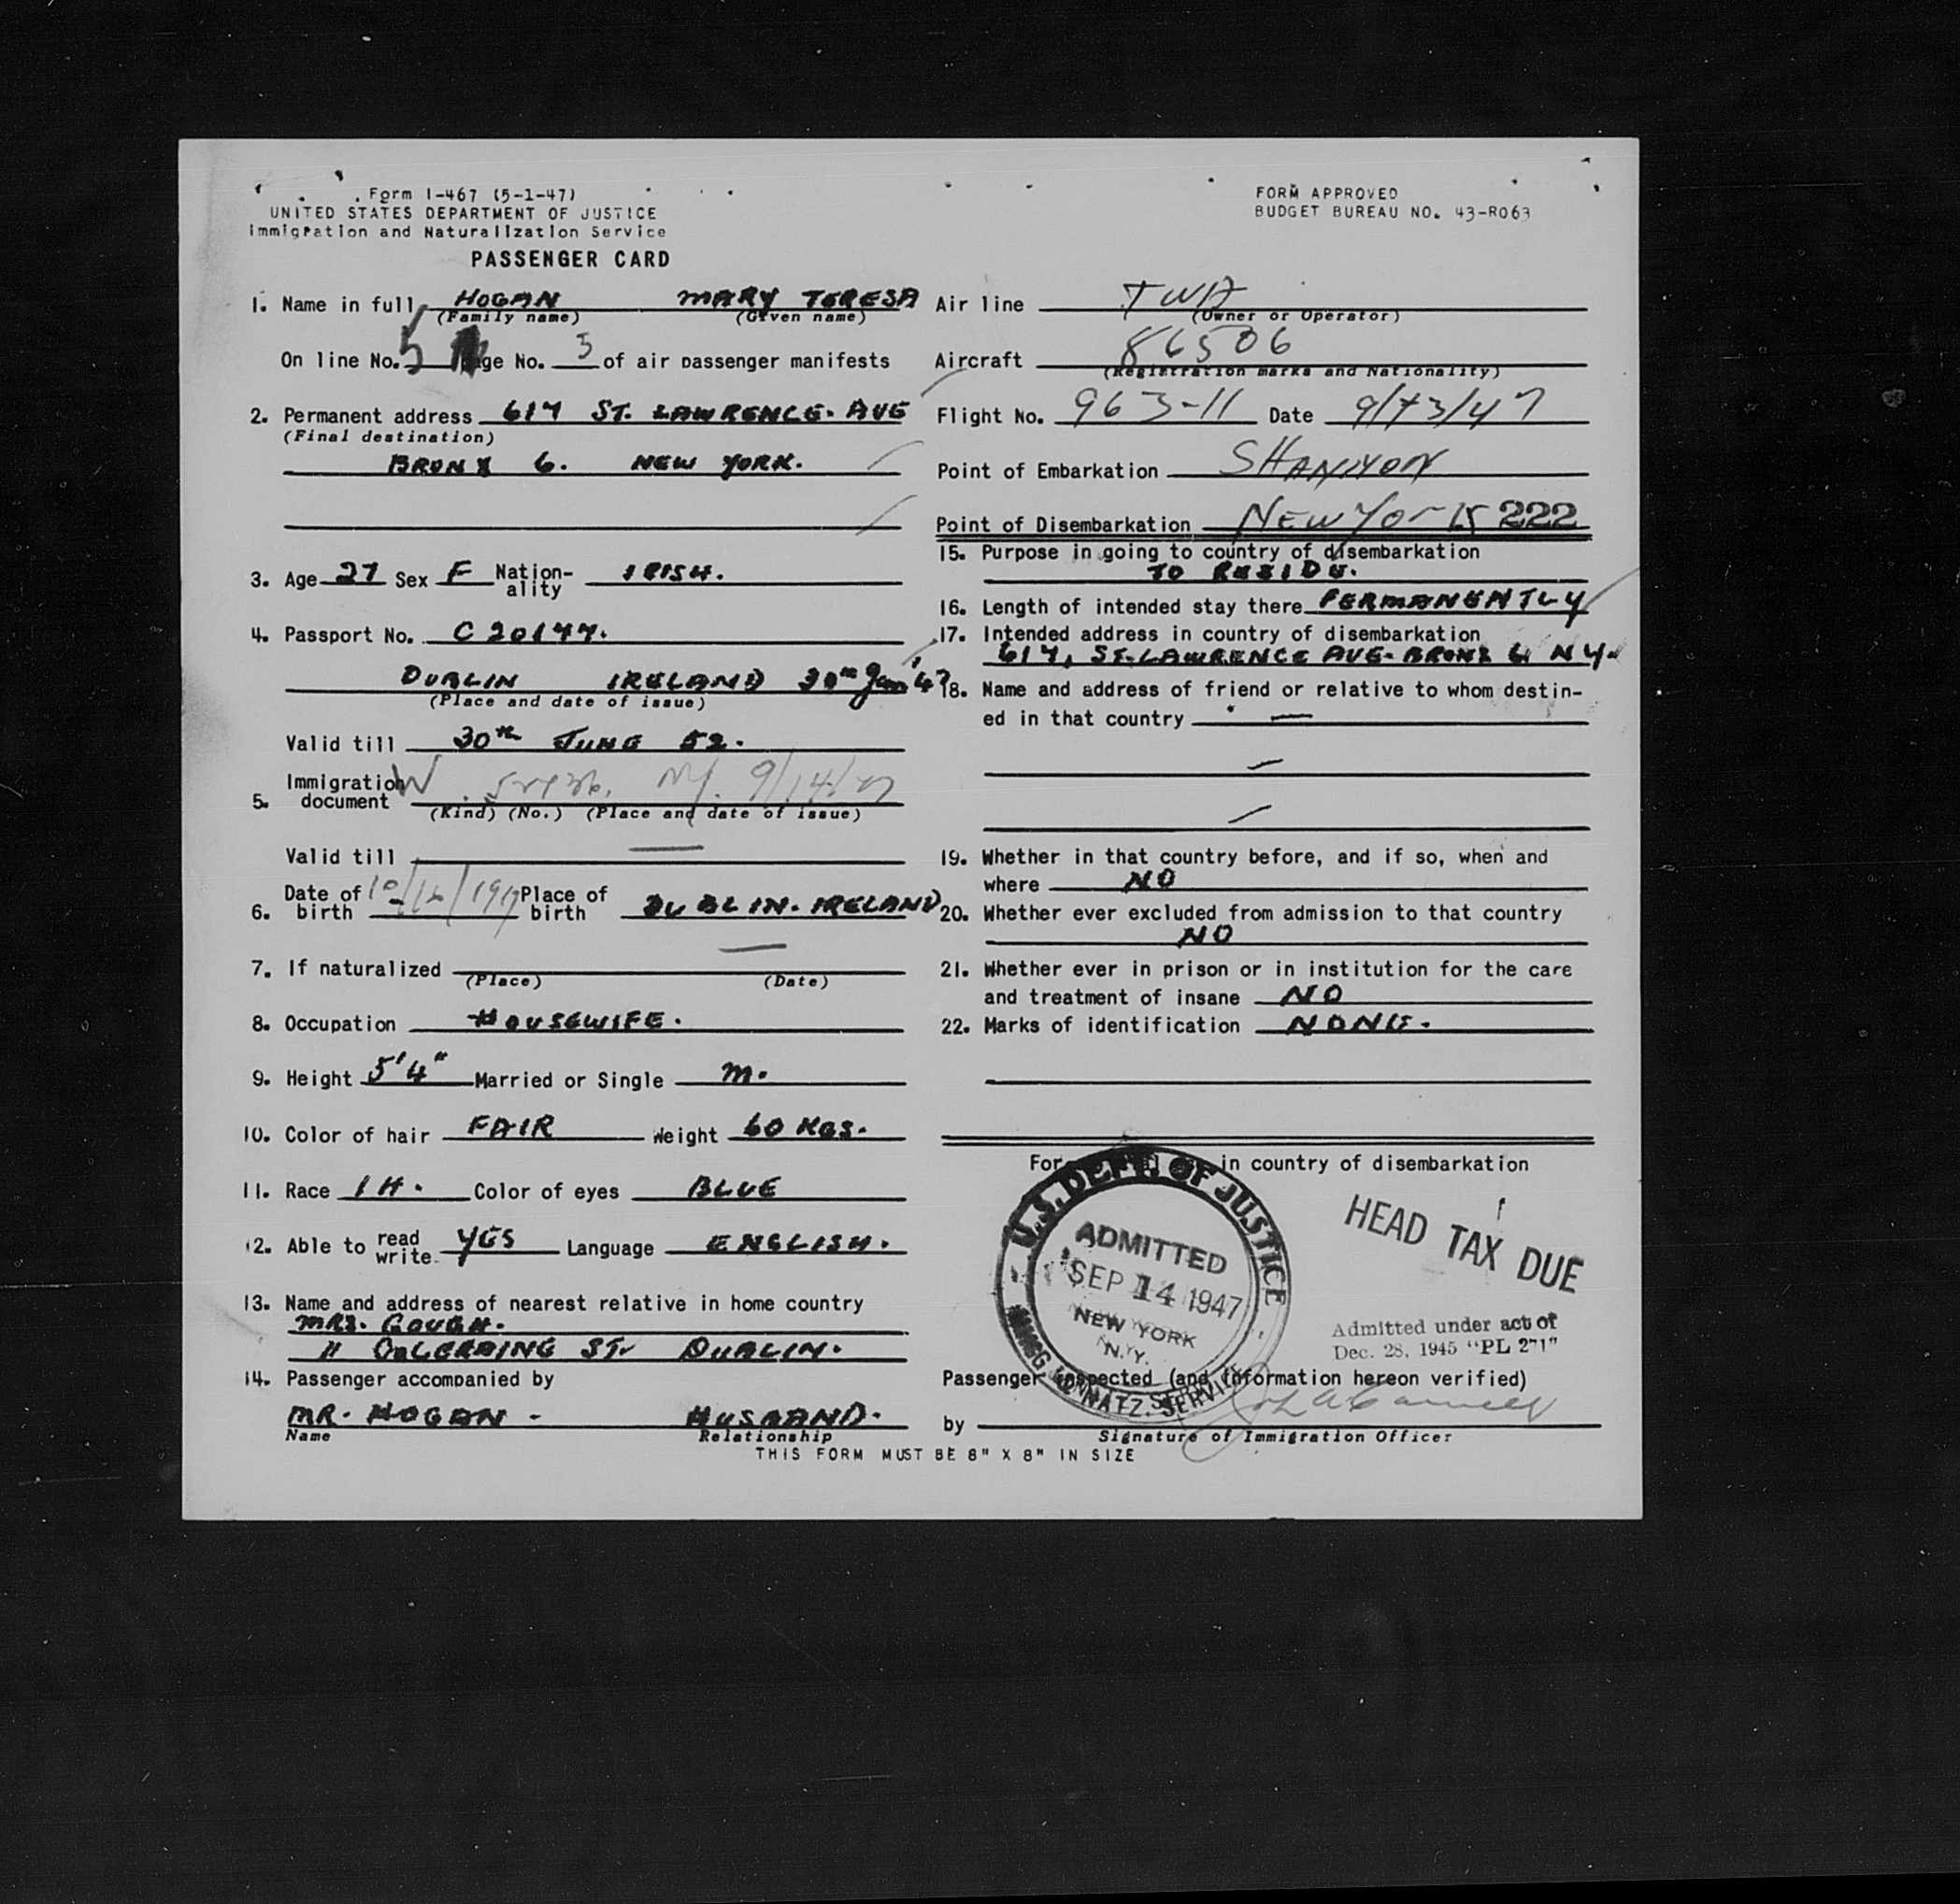 Form I-467 (5-1-47)
UNITED STATES DEPARTMENT OF JUSTICE
Immigration and Naturalization Service
PASSENGER CARD
FORM APPROVED
BUDGET BUREAU NO. 43-R063
1. Name in full HOGAN MARY TERESA
(Family name) (Given name)
On line No. 5 No. 3 of air passenger manifests
2. Permanent address 617 ST. LAWRENCE. AVE
(Final destination)
BRONX 6. NEW YORK.
3. Age 27 Sex F Nation-ality IRISH.
4. Passport No. C 20177.
DUBLIN IRELAND 30th '47
(Place and date of issue)
Valid till 30th JUNE 52.
5. Immigration document 9/14/47
(Kind) (No.) (Place and date of issue)
Valid till —
6. Date of birth Place of birth DUBLIN. IRELAND
7. If naturalized —
(Place) (Date)
8. Occupation HOUSEWIFE.
9. Height 5'4" Married or Single M.
10. Color of hair FAIR Weight 60 KGS.
11. Race IH. Color of eyes BLUE
12. Able to read write YES Language ENGLISH.
13. Name and address of nearest relative in home country
MRS. GOUGH.
11 ST. DUBLIN.
14. Passenger accompanied by
MR. HOGAN - HUSBAND.
Name Relationship
Air line TWA
(Owner or Operator)
Aircraft 86506
(Registration marks and Nationality)
Flight No. 963-11 Date 9/13/47
Point of Embarkation SHANNON
Point of Disembarkation NEW YORK 222
15. Purpose in going to country of disembarkation
TO RESIDE.
16. Length of intended stay there PERMANENTLY
17. Intended address in country of disembarkation
617, ST. LAWRENCE AVE. BRONX 6 N Y.
18. Name and address of friend or relative to whom destin-
ed in that country —
—
—
19. Whether in that country before, and if so, when and
where NO
20. Whether ever excluded from admission to that country
NO
21. Whether ever in prison or in institution for the care
and treatment of insane NO
22. Marks of identification NONE.
For in country of disembarkation
U.S. DEPT. OF JUSTICE
ADMITTED
SEP 14 1947
NEW YORK
N.Y.
IMMIG & NATZ. SERVICE
HEAD TAX DUE
Admitted under act of
Dec. 28, 1945 "PL 271"
Passenger inspected (and information hereon verified)
by
Signature of Immigration Officer
THIS FORM MUST BE 8" X 8" IN SIZE